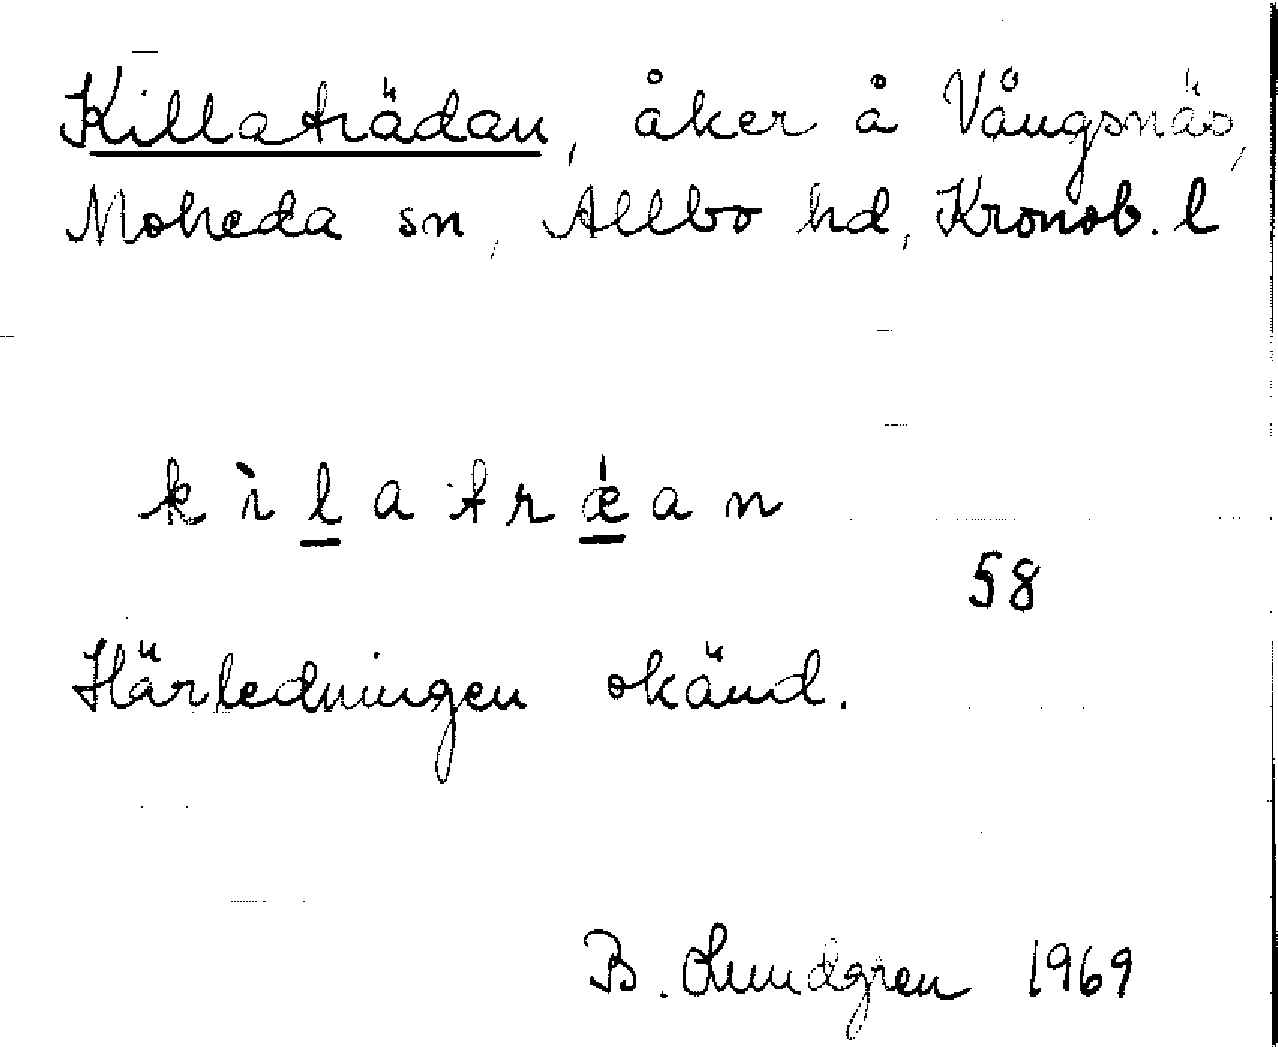 Killaträdan, åker å Vångsnäs,
Moheda sn, Allbo hd, Kronob. l
k ì l a t r ǽ a n
58
Härledningen okänd.
B. Lundgren 1969